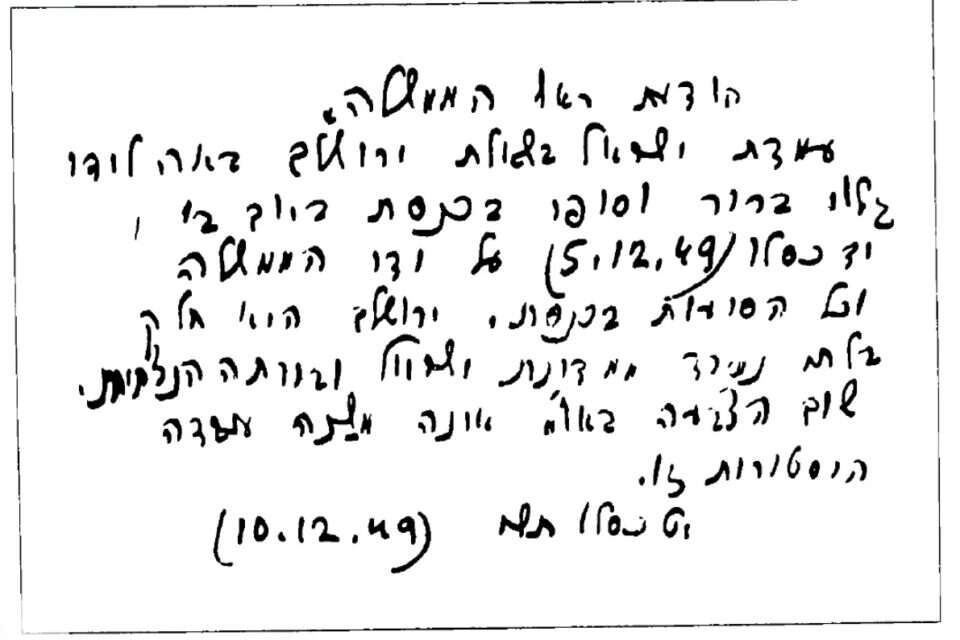 הודעת ראש הממשלה.
עמדת ישראל בשאלת ירושלים באה לידי
גלוי ברור וסופי בכנסת ביום ב',
יד כסלו (5.12.49) על ידי הממשלה
וכל הסיעות בכנסת. ירושלים היא חלק
בלתי נפרד ממדינת ישראל ובירתה הנצחית.
שום הצבעה באו"ם אינה משנה עובדה
היסטורית זו.
יט כסלו תשי (10.12.49)